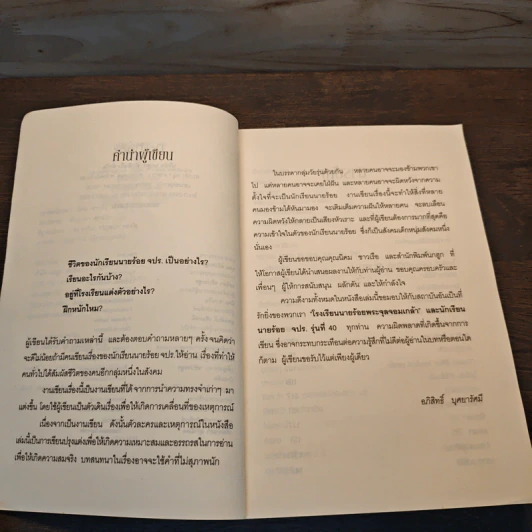 คำนำผู้เขียน
ชีวิตของนักเรียนนายร้อย จปร. เป็นอย่างไร?
เรียนอะไรกันบ้าง?
อยู่ที่โรงเรียนแต่งตัวอย่างไร?
ฝึกหนักไหม?
ผู้เขียนได้รับคำถามเหล่านี้ และต้องตอบคำถามหลายๆ ครั้ง จนคิดว่า
จะดีไม่น้อยถ้ามีคนเขียนเรื่องของนักเรียนนายร้อย จปร.ให้อ่าน เรื่องที่ทำให้
คนทั่วไปได้สัมผัสชีวิตของคนอีกกลุ่มหนึ่งในสังคม
งานเขียนเรื่องนี้เป็นงานเขียนที่ได้จากการนำความทรงจำเก่าๆ มา
แต่งขึ้น โดยใช้ผู้เขียนเป็นตัวเดินเรื่องเพื่อให้เกิดการเคลื่อนที่ของเหตุการณ์
เนื่องจากเป็นงานเขียน ดังนั้นตัวละครและเหตุการณ์ในหนังสือ
เล่มนี้เป็นการเขียนปรุงแต่งเพื่อให้เกิดความเหมาะสมและอรรถรสในการอ่าน
เพื่อให้เกิดความสมจริง บทสนทนาในเรื่องอาจจะใช้คำที่ไม่สุภาพนัก
ในบรรดากลุ่มวัยรุ่นด้วยกัน หลายคนอาจจะมองข้ามพวกเขา
ไป แต่หลายคนอาจจะเคยใฝ่ฝัน และหลายคนอาจจะผิดหวังจากความ
ตั้งใจที่จะเป็นนักเรียนนายร้อย งานเขียนเรื่องนี้จะทำให้สิ่งที่หลาย
คนมองข้ามได้หันมามอง จะเติมเต็มความฝันให้หลายคน จะลบเลือน
ความผิดหวังให้กลายเป็นเสียงหัวเราะ และที่ผู้เขียนต้องการมากที่สุดคือ
ความเข้าใจในตัวของนักเรียนนายร้อย ซึ่งก็เป็นสังคมเด็กหนุ่มสังคมหนึ่ง
นั่นเอง
ผู้เขียนขอขอบคุณคุณนิคม ชาวเรือ และสำนักพิมพ์นกฮูก ที่
ให้โอกาสผู้เขียนได้นำเสนอผลงานให้กับท่านผู้อ่าน ขอบคุณครอบครัวและ
เพื่อนๆ ผู้ให้การสนับสนุน ผลักดัน และให้กำลังใจ
ความดีงามทั้งหมดในหนังสือเล่มนี้ขอมอบให้กับสถาบันอันเป็นที่
รักยิ่งของพวกเรา 'โรงเรียนนายร้อยพระจุลจอมเกล้า' และนักเรียน
นายร้อย จปร. รุ่นที่ 40 ทุกท่าน ความผิดพลาดที่เกิดขึ้นจากการ
เขียน ซึ่งอาจกระทบกระเทือนต่อความรู้สึกที่ไม่ดีต่อผู้อ่านในบทหรือตอนใด
ก็ตาม ผู้เขียนขอรับไว้แต่เพียงผู้เดียว
อภิสิทธิ์ บุศยารัศมี